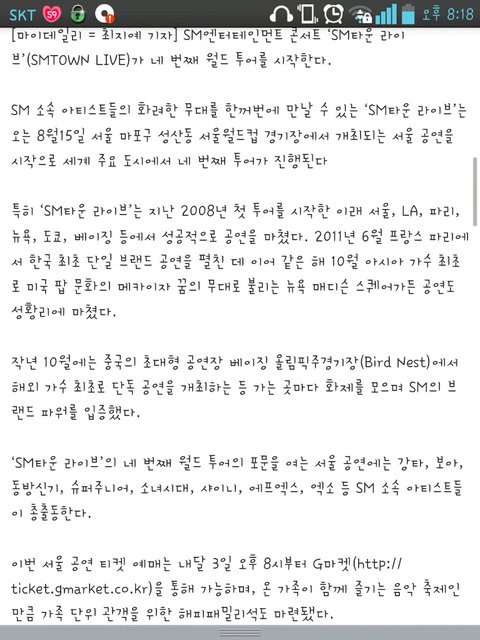 SKT 59 오후 8:18
[마이데일리 = 최지예 기자] SM엔터테인먼트 콘서트 ‘SM타운 라이
브’(SMTOWN LIVE)가 네 번째 월드 투어를 시작한다.
SM 소속 아티스트들의 화려한 무대를 한꺼번에 만날 수 있는 ‘SM타운 라이브’는
오는 8월15일 서울 마포구 성산동 서울월드컵 경기장에서 개최되는 서울 공연을
시작으로 세계 주요 도시에서 네 번째 투어가 진행된다
특히 ‘SM타운 라이브’는 지난 2008년 첫 투어를 시작한 이래 서울, LA, 파리,
뉴욕, 도쿄, 베이징 등에서 성공적으로 공연을 마쳤다. 2011년 6월 프랑스 파리에
서 한국 최초 단일 브랜드 공연을 펼친 데 이어 같은 해 10월 아시아 가수 최초
로 미국 팝 문화의 메카이자 꿈의 무대로 불리는 뉴욕 매디슨 스퀘어가든 공연도
성황리에 마쳤다.
작년 10월에는 중국의 초대형 공연장 베이징 올림픽주경기장(Bird Nest)에서
해외 가수 최초로 단독 공연을 개최하는 등 가는 곳마다 화제를 모으며 SM의 브
랜드 파워를 입증했다.
‘SM타운 라이브’의 네 번째 월드 투어의 포문을 여는 서울 공연에는 강타, 보아,
동방신기, 슈퍼주니어, 소녀시대, 샤이니, 에프엑스, 엑소 등 SM 소속 아티스트들
이 총출동한다.
이번 서울 공연 티켓 예매는 내달 3일 오후 8시부터 G마켓(http://
ticket.gmarket.co.kr)을 통해 가능하며, 온 가족이 함께 즐기는 음악 축제인
만큼 가족 단위 관객을 위한 해피패밀리석도 마련됐다.